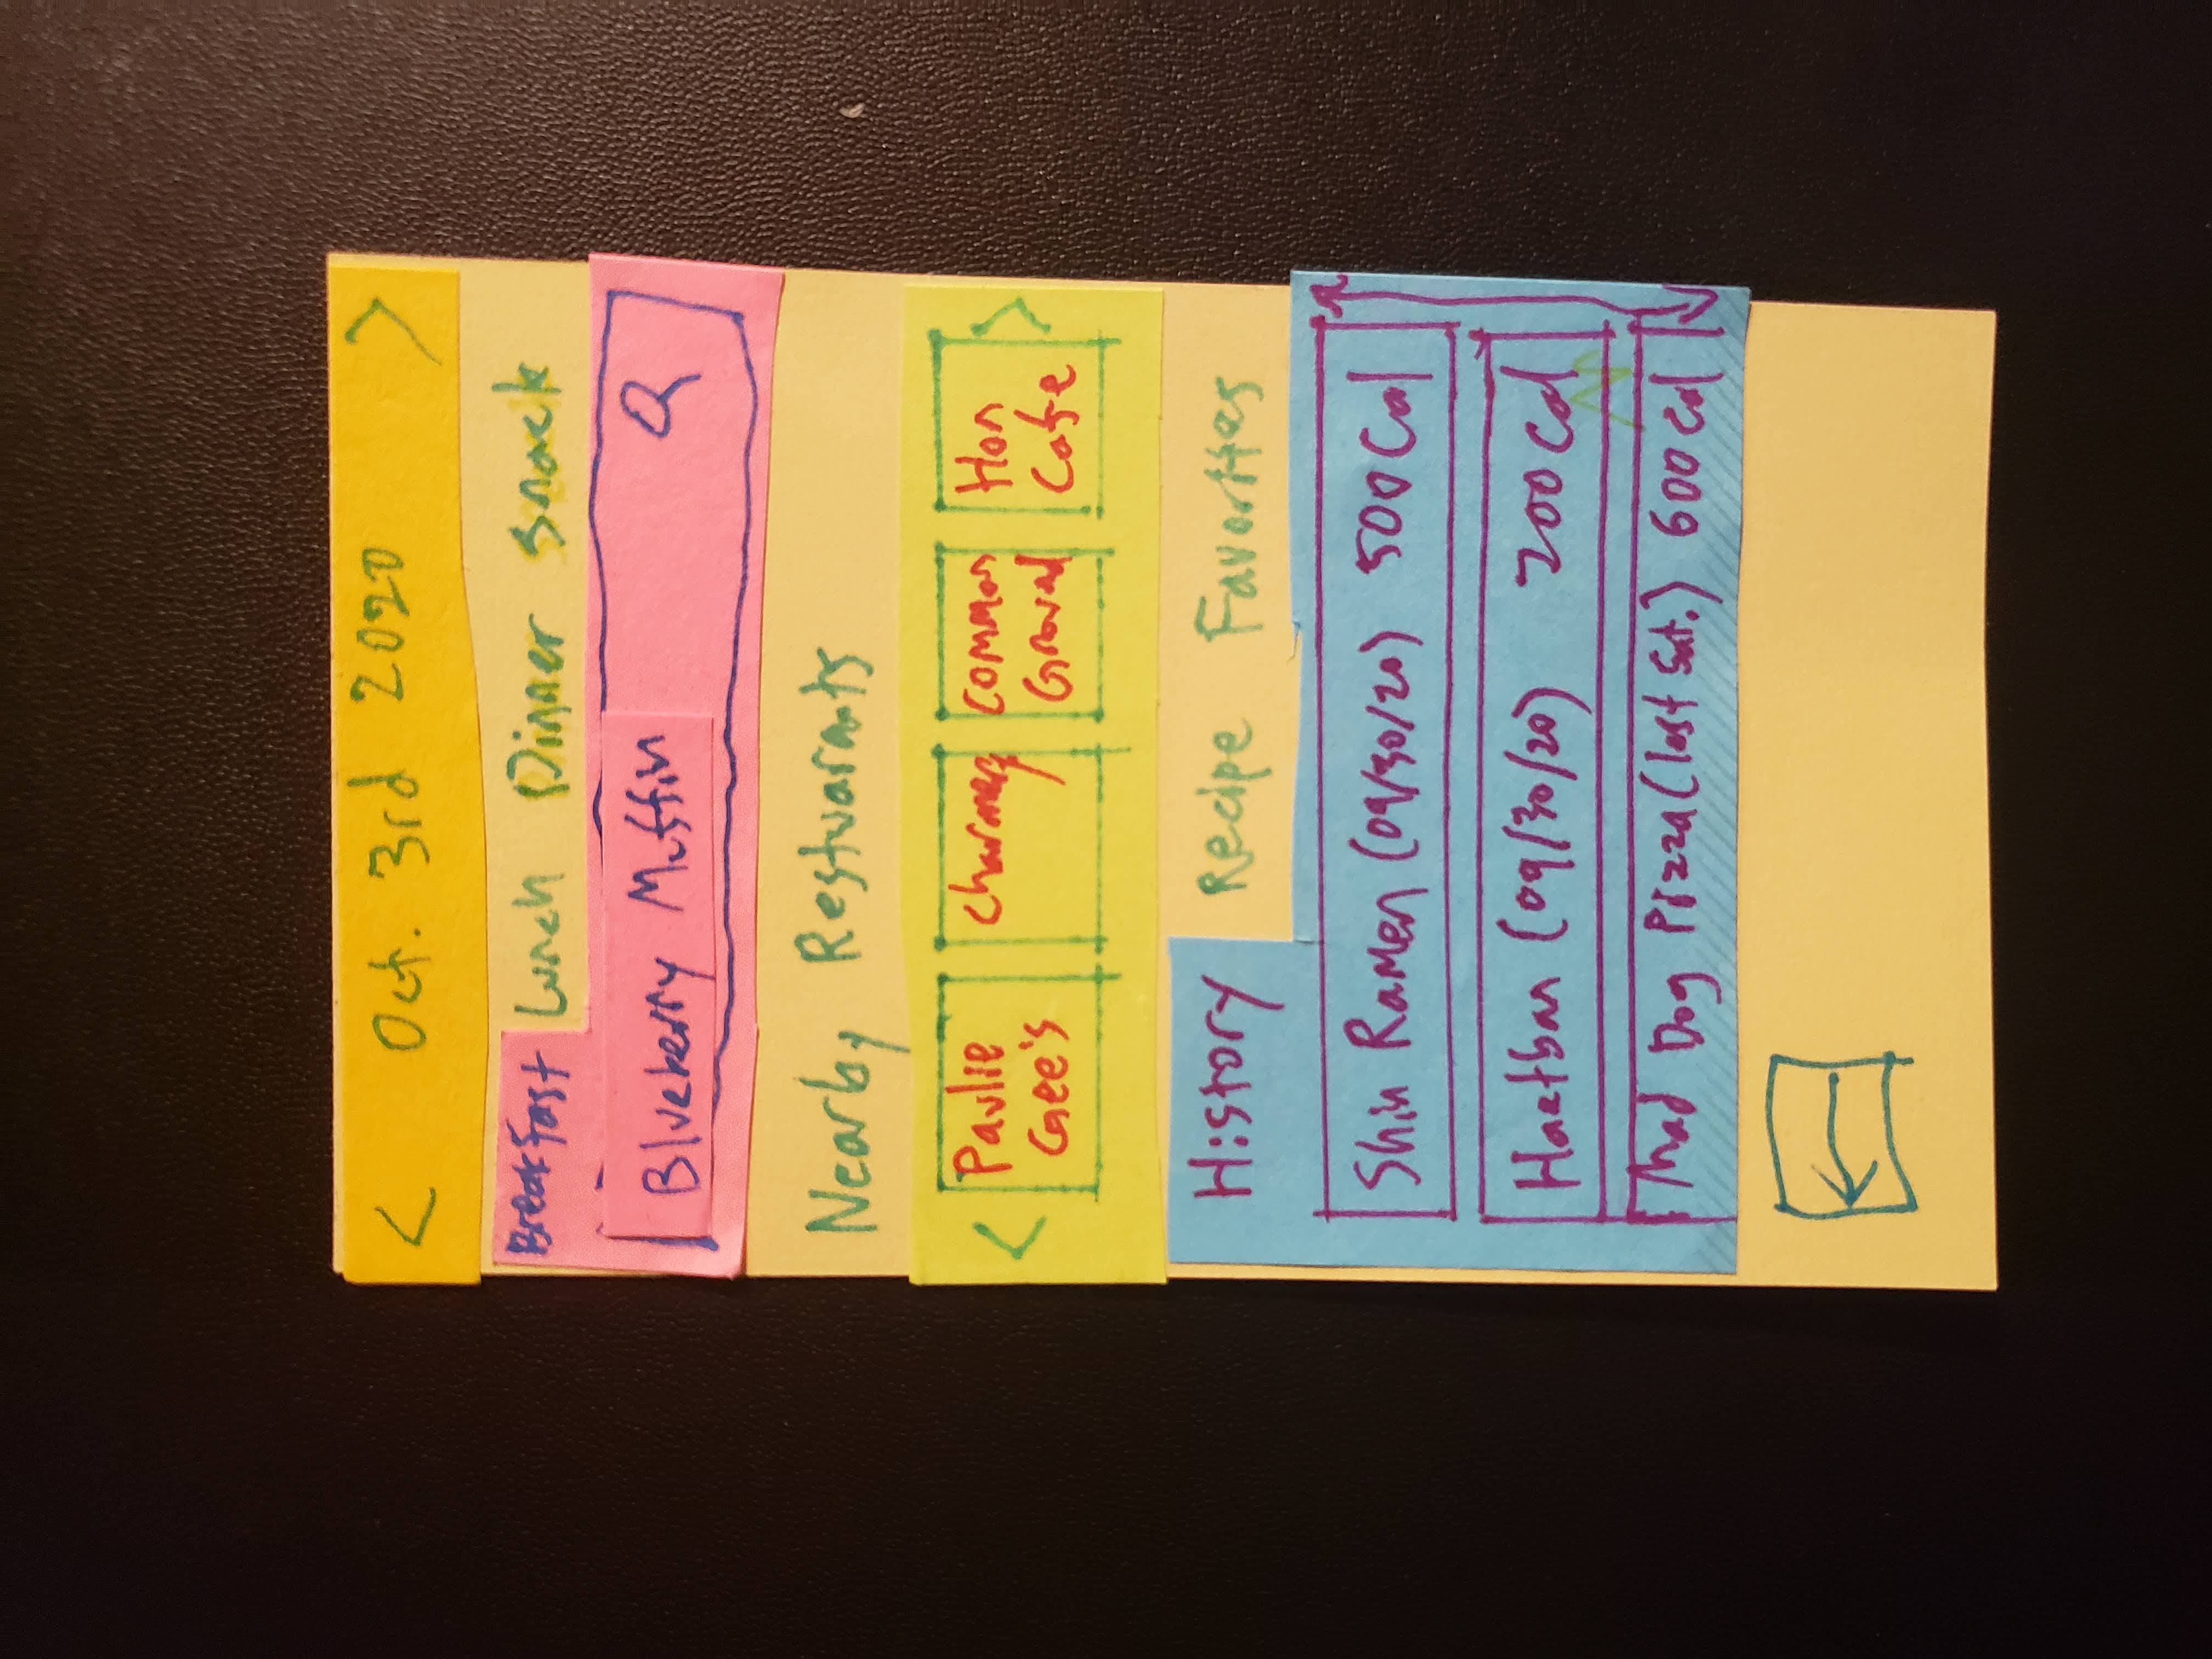 < Oct. 3rd 2020 >
Breakfast Lunch Dinner Snack
Blueberry Muffin
Nearby Restuarants
< Paulie Gee's
Charmery
Common Ground
Hon Cafe >
History Recipe Favorites
Shin Ramen (09/30/20) 500 Cal
Haetban (09/30/20) 200 Cal
Mad Dog Pizza (last Sat.) 600 Cal